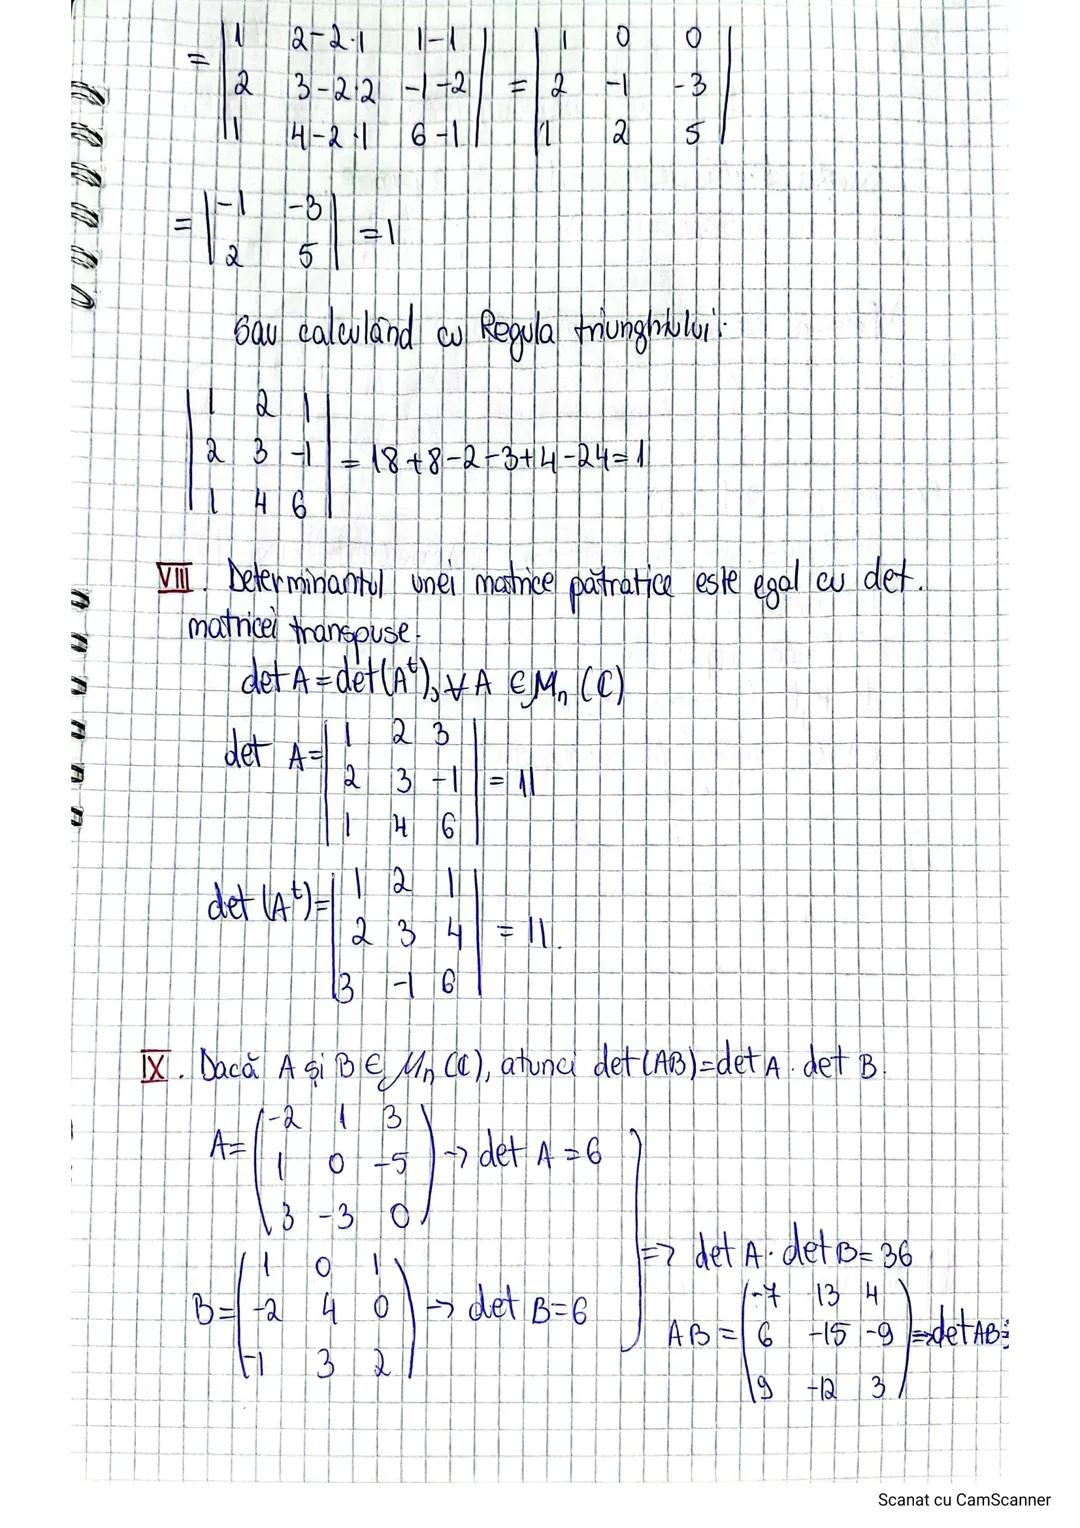 = | 1 2-2·1 1-1 | = | 1 0 0 |
| 2 3-2·2 -1-2 | | 2 -1 -3 |
| 1 4-2·1 6-1 | | 1 2 5 |
= | -1 -3 | = 1
| 2 5 |
Sau calculând cu Regula triunghiului:
| 1 2 1 |
| 2 3 -1 | = 18+8-2-3+4-24=1
| 1 4 6 |
VIII. Determinantul unei matrice pătratice este egal cu det.
matricei transpuse.
det A = det(Aᵗ), ∀ A ∈ Mₙ (C)
det A = | 1 2 3 |
| 2 3 -1 | = 11
| 1 4 6 |
det (Aᵗ) = | 1 2 1 |
| 2 3 4 | = 11.
| 3 -1 6 |
IX. Dacă A și B ∈ Mₙ (C), atunci det(AB)=det A · det B.
A= ( -2 1 3 )
( 1 0 -5 ) → det A = 6
( 3 -3 0 )
B= ( 1 0 1 )
( -2 4 0 ) → det B=6
( -1 3 2 )
=> det A · det B = 36
AB = ( -7 13 4 )
( 6 -15 -9 ) => det AB=
( 9 -12 3 )
Scanat cu CamScanner